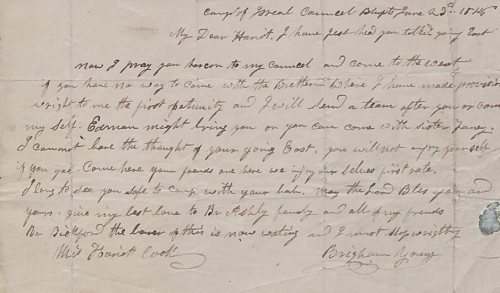 camp of Isreal Council Blufs June 23d 1846
My Dear Hariot. I have just heard you talked going East
now I pray you harcon to my Councel and come to the west
if you have no way to come with the Bretheren Where I have made provision
wright to me the first oportunity and I will send a team after you or come
my self. Edman might bring you or you can come with sister
I cannot bare the thought of your going East, you will not enjoy your self
if you go. Come here your friends are here we injoy our selves first rate.
I long to see you safe to camp with your babe. may the Lord Bles you and
yours. give my best love to Br Ashby family and all of my frends
Br Bickford the barer of this is now wating and I must stop wrighting
Mis Hariot Cook Brigham Young